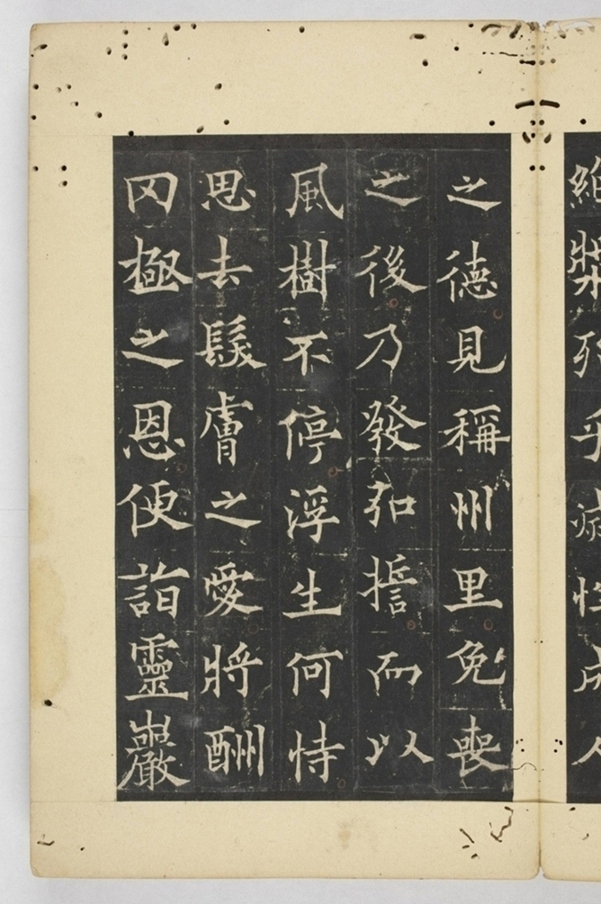 絶漿乎性成人
之德見稱州里免喪
之後乃發弘誓而以
風樹不停浮生何恃
思去髮膚之愛將酬
罔極之恩便詣靈巖